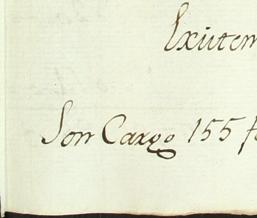 Exütem
Son Cargo 155 f